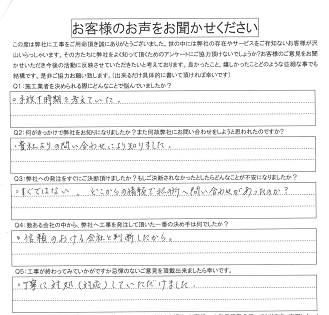 お客様のお声をお聞かせください
この度は弊社に工事をご用命頂き誠にありがとうございました。世の中には弊社の存在やサービスをご存知ないお客様が沢
山いらっしゃいます。その方たちに弊社をよく知って頂くためのアンケートにご協力頂けないでしょうか?お客様のご意見をお聞
かせいただき今後の活動に反映させていただきたいと考えております。良かったこと、嬉しかったことどのような些細な事でも
結構です。是非ご協力お願い致します。(出来るだけ具体的に書いて頂ければ幸いです)
Q1:施工業者を決められる際にどんなことで悩んでいましたか?
・予算、時期を考えていた。
Q2:何がきっかけで弊社をお知りになりましたか?また何故弊社にお問い合わせをしようと思われたのですか?
・貴社よりの問い合わせにより知りました。
Q3:弊社への発注をすぐにご決断頂けましたか?もしご決断されなかったとしたらどんなことが不安になりましたか?
・すぐではない。どこからの情報で私の所へ問い合わせがあったのか?
Q4:数ある会社の中から、弊社へ工事を発注して頂いた一番の決め手は何でしたか?
・信頼のおける会社と判断したから。
Q5:工事が終わってみていかがですか忌憚のないご意見を頂戴出来ましたら幸いです。
・丁寧に対処(対応)していただけました。